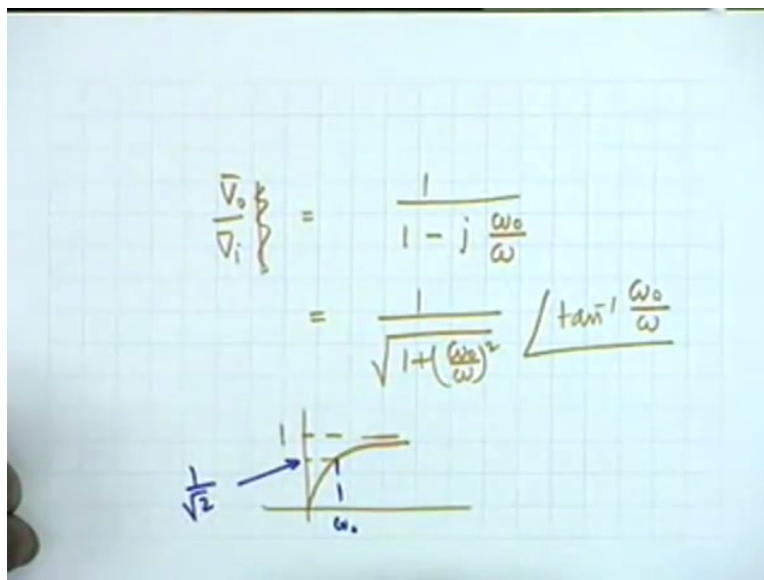 V̄₀/V̄ᵢ } = 1/(1 - j ω₀/ω)
= 1/√(1+(ω₀/ω)²) ∠tan⁻¹ ω₀/ω
1
1/√2
ω₀